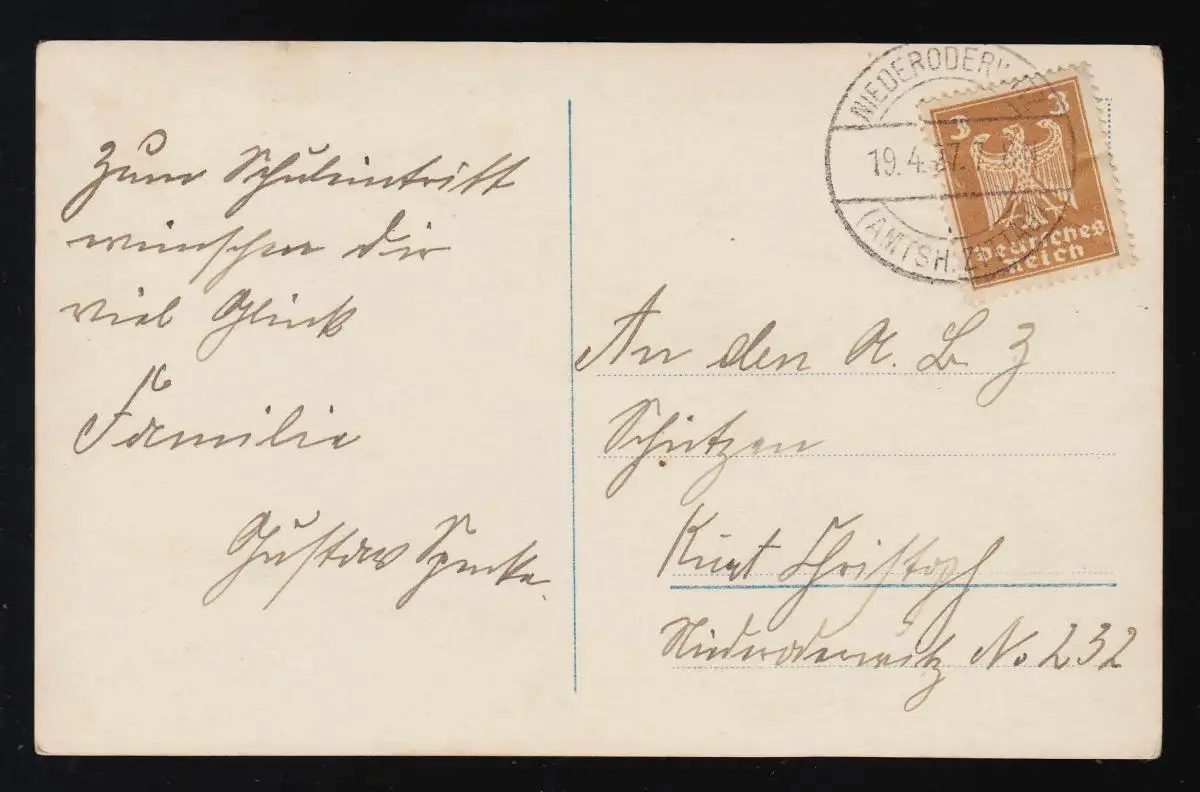 Zum Schuleintritt
wünschen dir
viel Glück
Familie
Gustav
NIEDERODER
19.4.27.
(AMTSH. ZITTAU)
3 3
Deutsches
Reich
An den A. B. Z
Schützen
Kurt Christoph
Niederoderwitz No 232